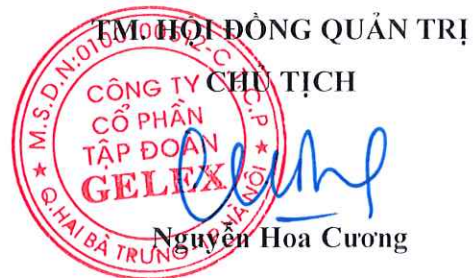 TM. HỘI ĐỒNG QUẢN TRỊ
CHỦ TỊCH
M.S.D.N:0100100512-C.T.C.P
CÔNG TY
CỔ PHẦN
TẬP ĐOÀN
GELEX
Q.HAI BÀ TRƯNG - TP.HÀ NỘI
Nguyễn Hoa Cương